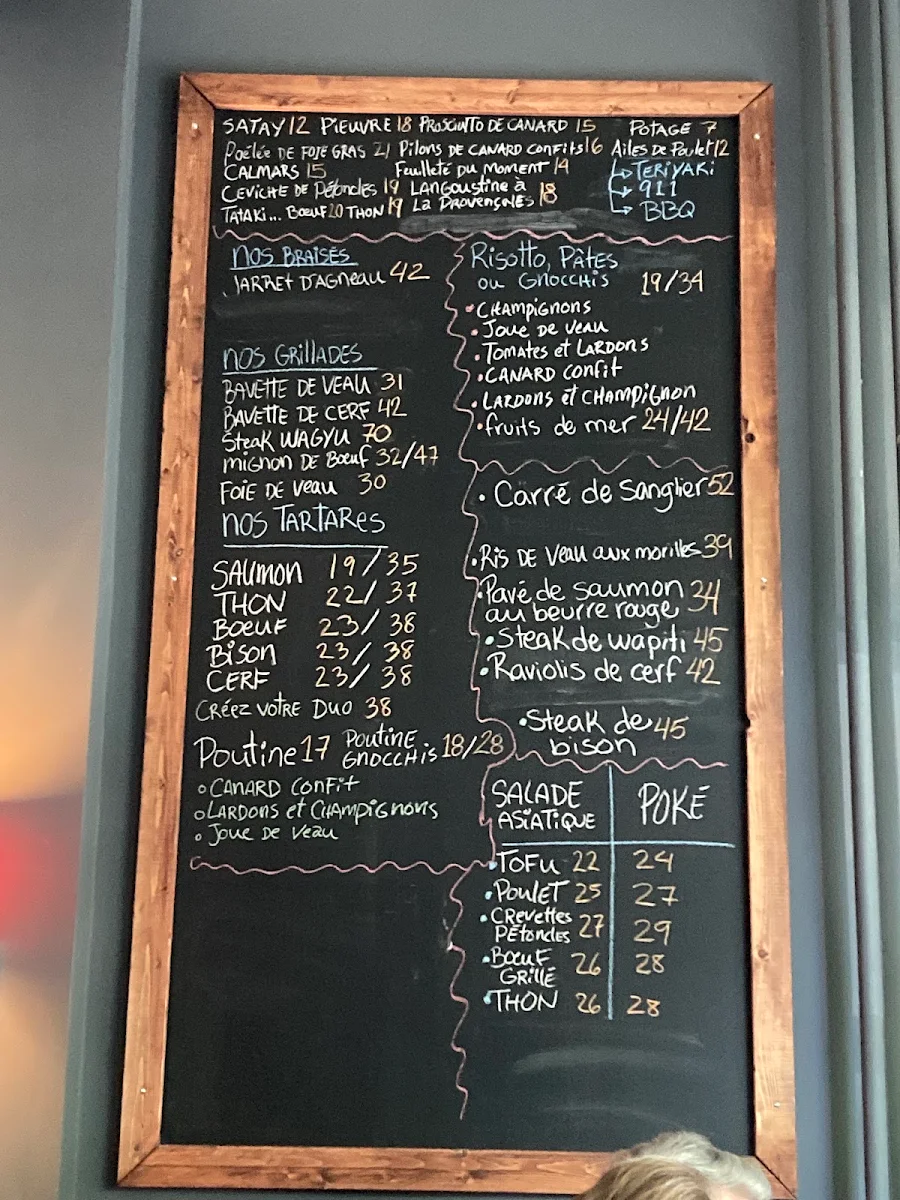 SATAY 12 PIEUVRE 18 PROSCIUTTO DE CANARD 15 POTAGE 7
Poêlée DE FOIE GRAS 21 Pilons DE CANARD confits 16 Ailes De Poulet 12
CALMARS 15 Feuilleté du moment 14
↳ TERIYAKI
CEVICHE DE Pétoncles 19 LANgoustine à La Provençales 18
↳ 911
TATAKI... Boeuf 20 THON 19
↳ BBQ
NOS BRAISÉS
JARRET D'AGNEAU 42
NOS GRILLADES
BAVETTE DE VEAU 31
BAVETTE DE CERF 42
Steak WAGYU 70
mignon DE Boeuf 32/47
FOIE DE VEAU 30
NOS TARTARES
SAUMON 19/35
THON 22/37
BOEUF 23/38
BISON 23/38
CERF 23/38
CRÉEZ VOTRE DUO 38
Poutine 17 Poutine GNOCCHIS 18/28
CANARD CONFIT
LARDONS et CHAMPIGNONS
JOUE DE VEAU
Risotto, PÂTES
ou GNOCCHIS 19/34
• CHAMPIGNONS
• JOUE DE VEAU
• Tomates et LARDONS
• CANARD confit
• LARDONS et CHAMPIGNON
• fruits de mer 24/42
• Carré de Sanglier 52
• RIS DE VEAU aux morilles 39
• Pavé de saumon
au beurre rouge 34
• Steak de wapiti 45
• Raviolis de cerf 42
• Steak de
bison 45
SALADE
ASIATIQUE POKÉ
• TOFU 22 24
• POULET 25 27
• CREVETTES
PÉTONCLES 27 29
• BOEUF
GRILLÉ 26 28
• THON 26 28